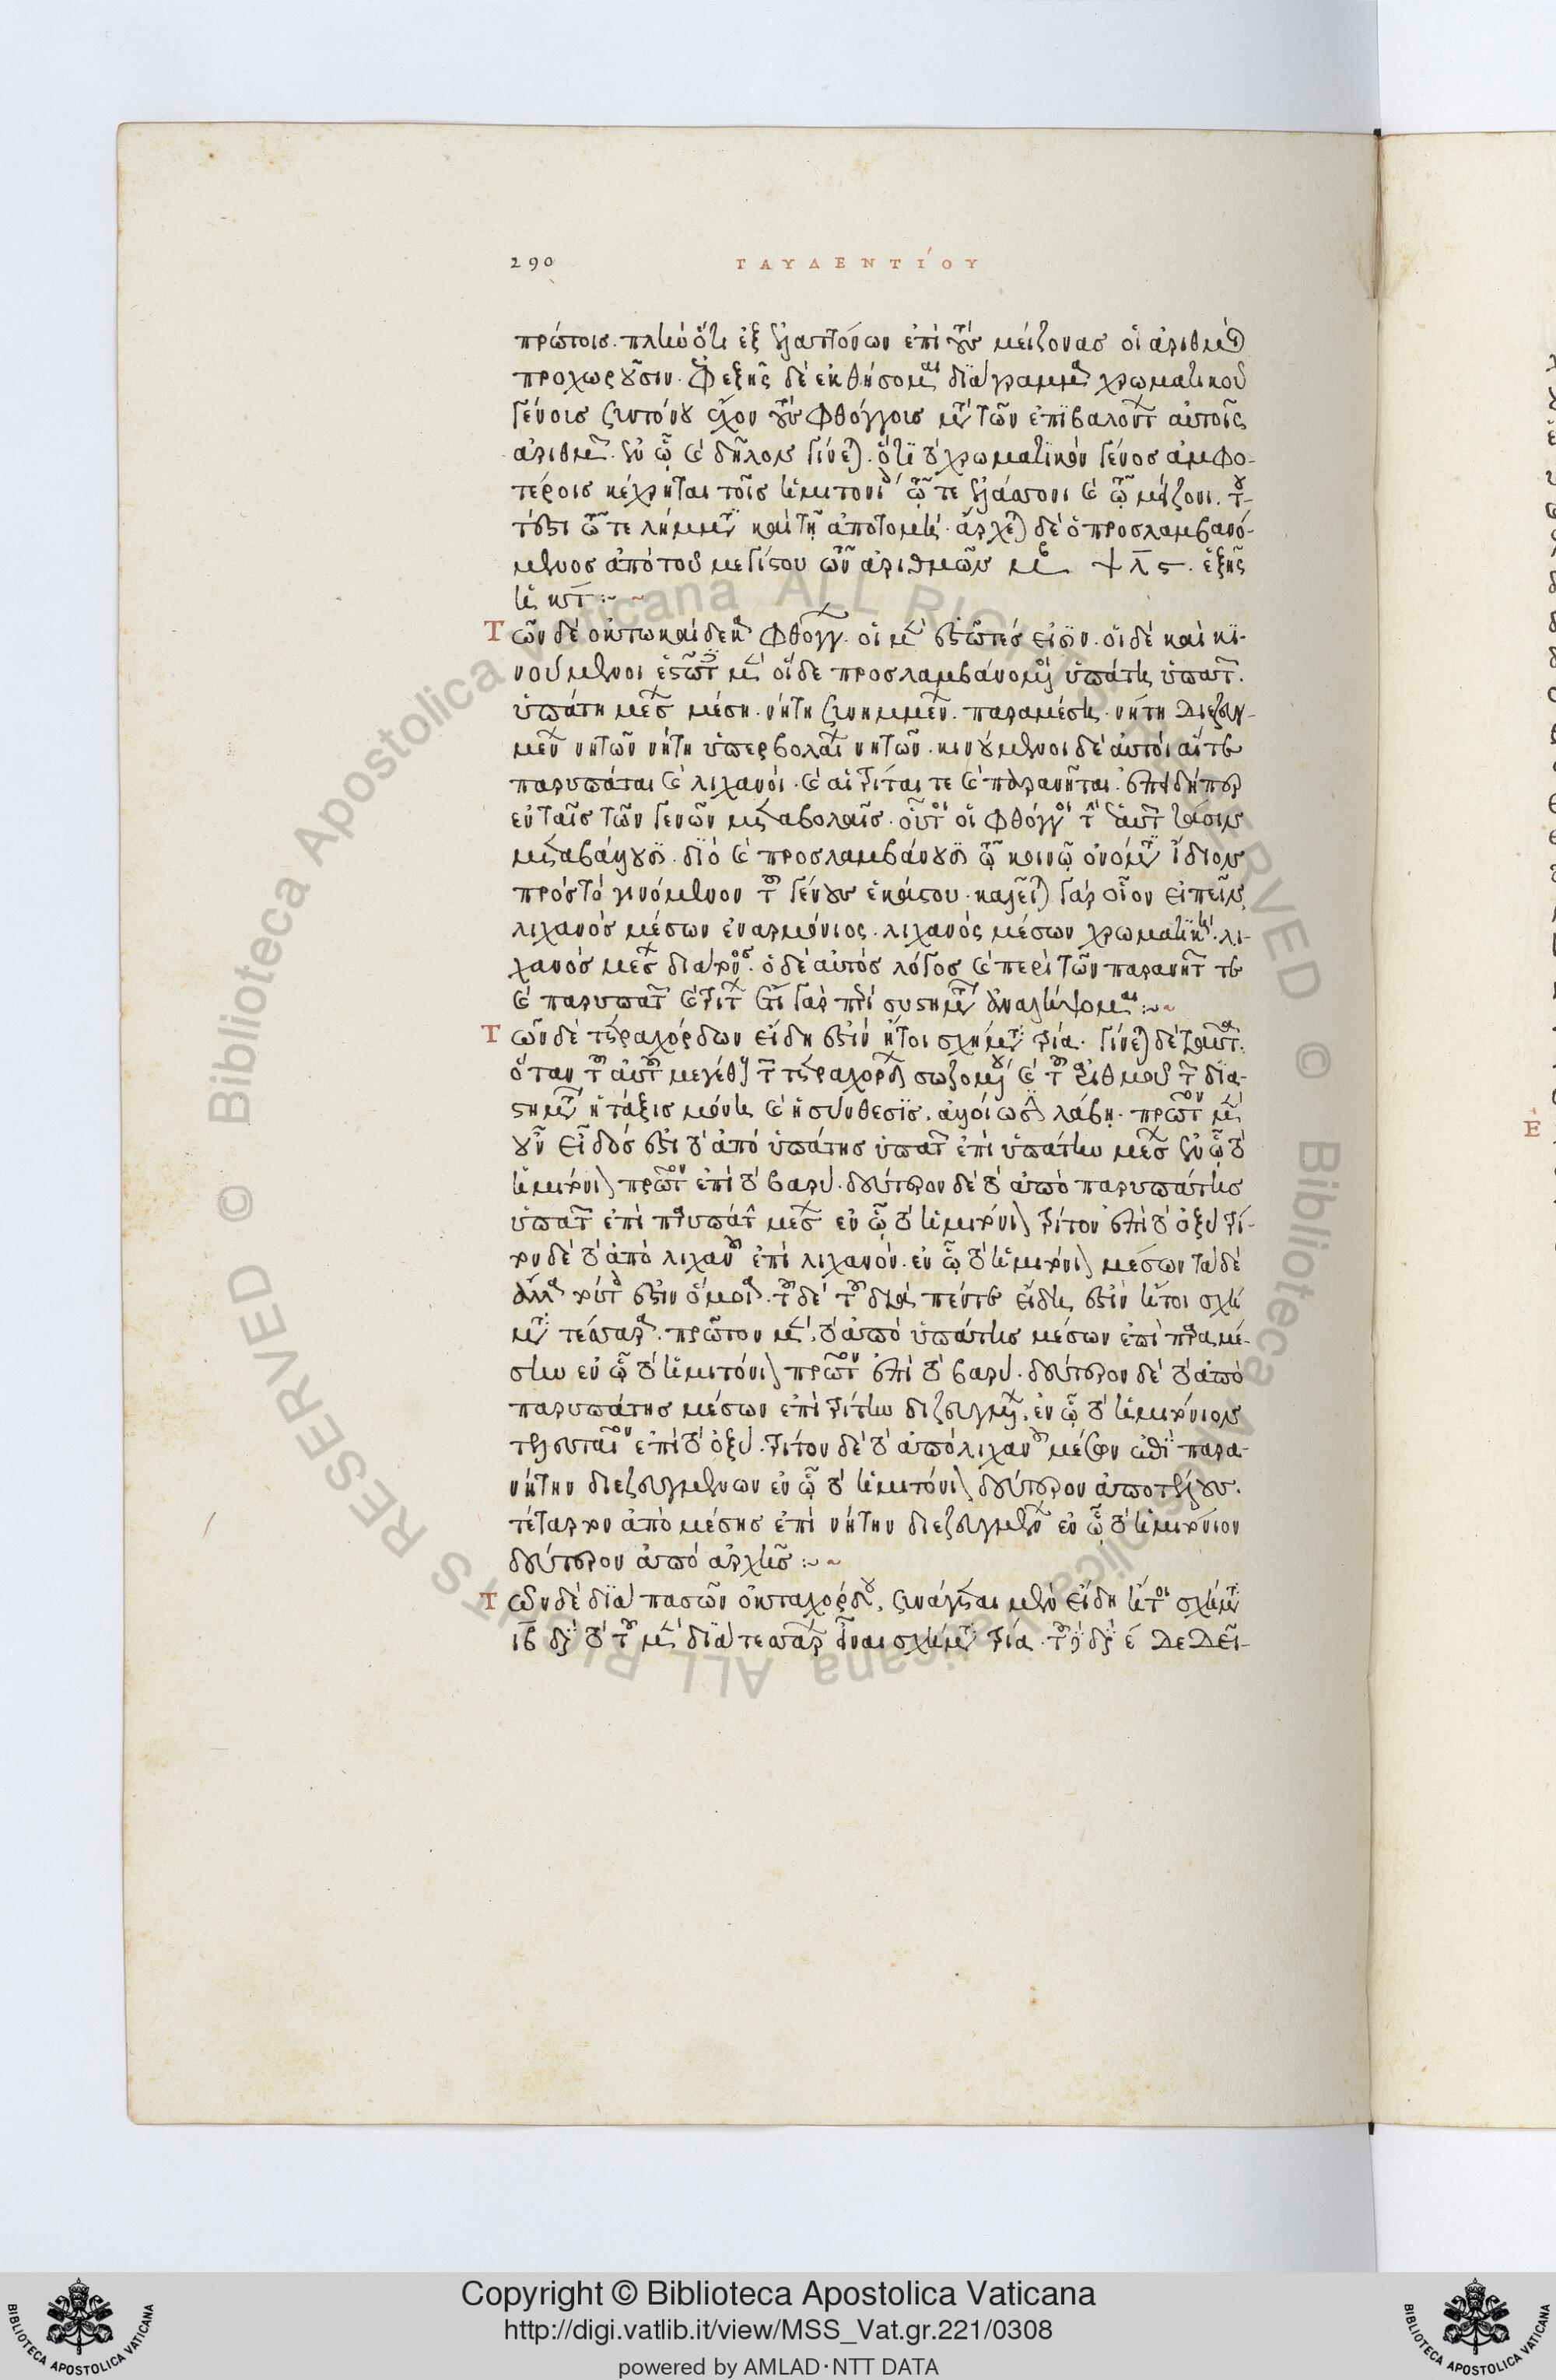 290 ΓΑΥΔΕΝΤΊΟΥ
πρώτοις. πλὴν ὅτι ἐξ ἐλαττόνων ἐπὶ τοὺς μείζονας οἱ ἀριθμοὶ
προχωροῦσιν. ἐφεξῆς δὲ ἐκθήσομαι διάγραμμα χρωματικοῦ
γένους συντόνου ἔχον τοὺς φθόγγους μετὰ τῶν ἐπιβαλόντων αὐτοῖς
ἀριθμῶν. ἐν ᾧ καὶ δῆλον γίνεται. ὅτι τὸ χρωματικὸν γένος ἀμφο-
τέροις κέχρηται τοῖς ἡμιτονίοις τῷ τε ἐλάττονι καὶ τῷ μείζονι. του-
τέστι τῷ τε λήμματι καὶ τῇ ἀποτομῇ. ἄρχεται δὲ ὁ προσλαμβανό-
μενος ἀπὸ τοῦ μεγίστου τῶν ἀριθμῶν ἑξῆς
Τῶν δὲ ὀκτωκαίδεκα φθόγγων. οἱ μὲν ἑστῶτές εἰσιν. οἱ δὲ καὶ κι-
νούμενοι ἑστῶτες μὲν οἵδε προσλαμβανόμενος ὑπάτη ὑπάτων.
ὑπάτη μέσων μέση. νήτη συνημμένων. παραμέση. νήτη διεζευγ-
μένων νητῶν νήτη ὑπερβολαίων νητῶν. κινούμενοι δὲ αὐτοὶ αἵ τε
παρυπάται καὶ λιχανοί. καὶ αἱ τρίται τε καὶ παρανῆται. ἐπειδήπερ
ἐν ταῖς τῶν γενῶν μεταβολαῖς. οὗτοι οἱ φθόγγοι τὴν ἑαυτῶν τάσιν
μεταβάλλουσι. διὸ καὶ προσλαμβάνουσι τῷ κοινῷ ὀνόματι ἴδιον
πρὸς τὸ γινόμενον τοῦ γένους ἑκάστου. καλεῖται γὰρ οἷον εἰπεῖν
λιχανὸς μέσων ἐναρμόνιος. λιχανὸς μέσων χρωματική. λι-
χανὸς μέσων διάτονος. ὁ δὲ αὐτὸς λόγος καὶ περὶ τῶν παρανητῶν τε
καὶ παρυπατῶν καὶ τριτῶν
Τῶν δὲ τετραχόρδων εἴδη ἐστὶν ἤτοι σχήματα τρία. γίνεται δὲ ταῦτα.
ὅταν τοῦ αὐτοῦ μεγέθους τοῦ τετραχόρδου σωζομένου καὶ τοῦ ἀριθμοῦ τῶν δια-
στημάτων ἡ τάξις μόνη καὶ ἡ σύνθεσις. ἀλλοίωσιν λάβῃ. πρῶτον μὲν
οὖν εἶδός ἐστι τὸ ἀπὸ ὑπάτης ὑπάτων ἐπὶ ὑπάτην μέσων ἐν ᾧ τὸ
ἡμιτόνιον πρῶτον ἐπὶ τὸ βαρύ. δεύτερον δὲ τὸ ἀπὸ παρυπάτης
ὑπάτων ἐπὶ παρυπάτην μέσων ἐν ᾧ τὸ ἡμιτόνιον τρίτον ἐπὶ τὸ ὀξύ τρί-
τον δὲ τὸ ἀπὸ λιχανοῦ ἐπὶ λιχανόν. ἐν ᾧ τὸ ἡμιτόνιον μέσων τὰ δὲ
ἄλλα τούτοις ἐστὶν ὅμοια. τοῦ δὲ τοῦ διὰ πέντε εἴδη ἐστὶν ἤτοι σχή
ματα τέσσαρα. πρῶτον μὲν. τὸ ἀπὸ ὑπάτης μέσων ἐπὶ παραμέ-
σην ἐν ᾧ τὸ ἡμιτόνιον πρῶτον ἐπὶ τὸ βαρύ. δεύτερον δὲ τὸ ἀπὸ
παρυπάτης μέσων ἐπὶ τρίτην διεζευγμένων. ἐν ᾧ τὸ ἡμιτόνιον
τελευταῖον ἐπὶ τὸ ὀξύ. τρίτον δὲ τὸ ἀπὸ λιχανοῦ μέσων ἐπὶ παρα-
νήτην διεζευγμένων ἐν ᾧ τὸ ἡμιτόνιον δεύτερον ἀπὸ τέλους.
τέταρτον ἀπὸ μέσης ἐπὶ νήτην διεζευγμένων ἐν ᾧ τὸ ἡμιτόνιον
δεύτερον ἀπὸ ἀρχῆς :~
Τῶν δὲ διὰ πασῶν ὀκταχόρδου, συνάγεται μὲν εἴδη ἤτοι σχήματα
ιβ διὰ τὸ τοῦ μὲν διὰ τεσσάρων εἶναι σχήματα τρία. δεδεῖ-
Copyright © Biblioteca Apostolica Vaticana
http://digi.vatlib.it/view/MSS_Vat.gr.221/0308
powered by AMLAD·NTT DATA